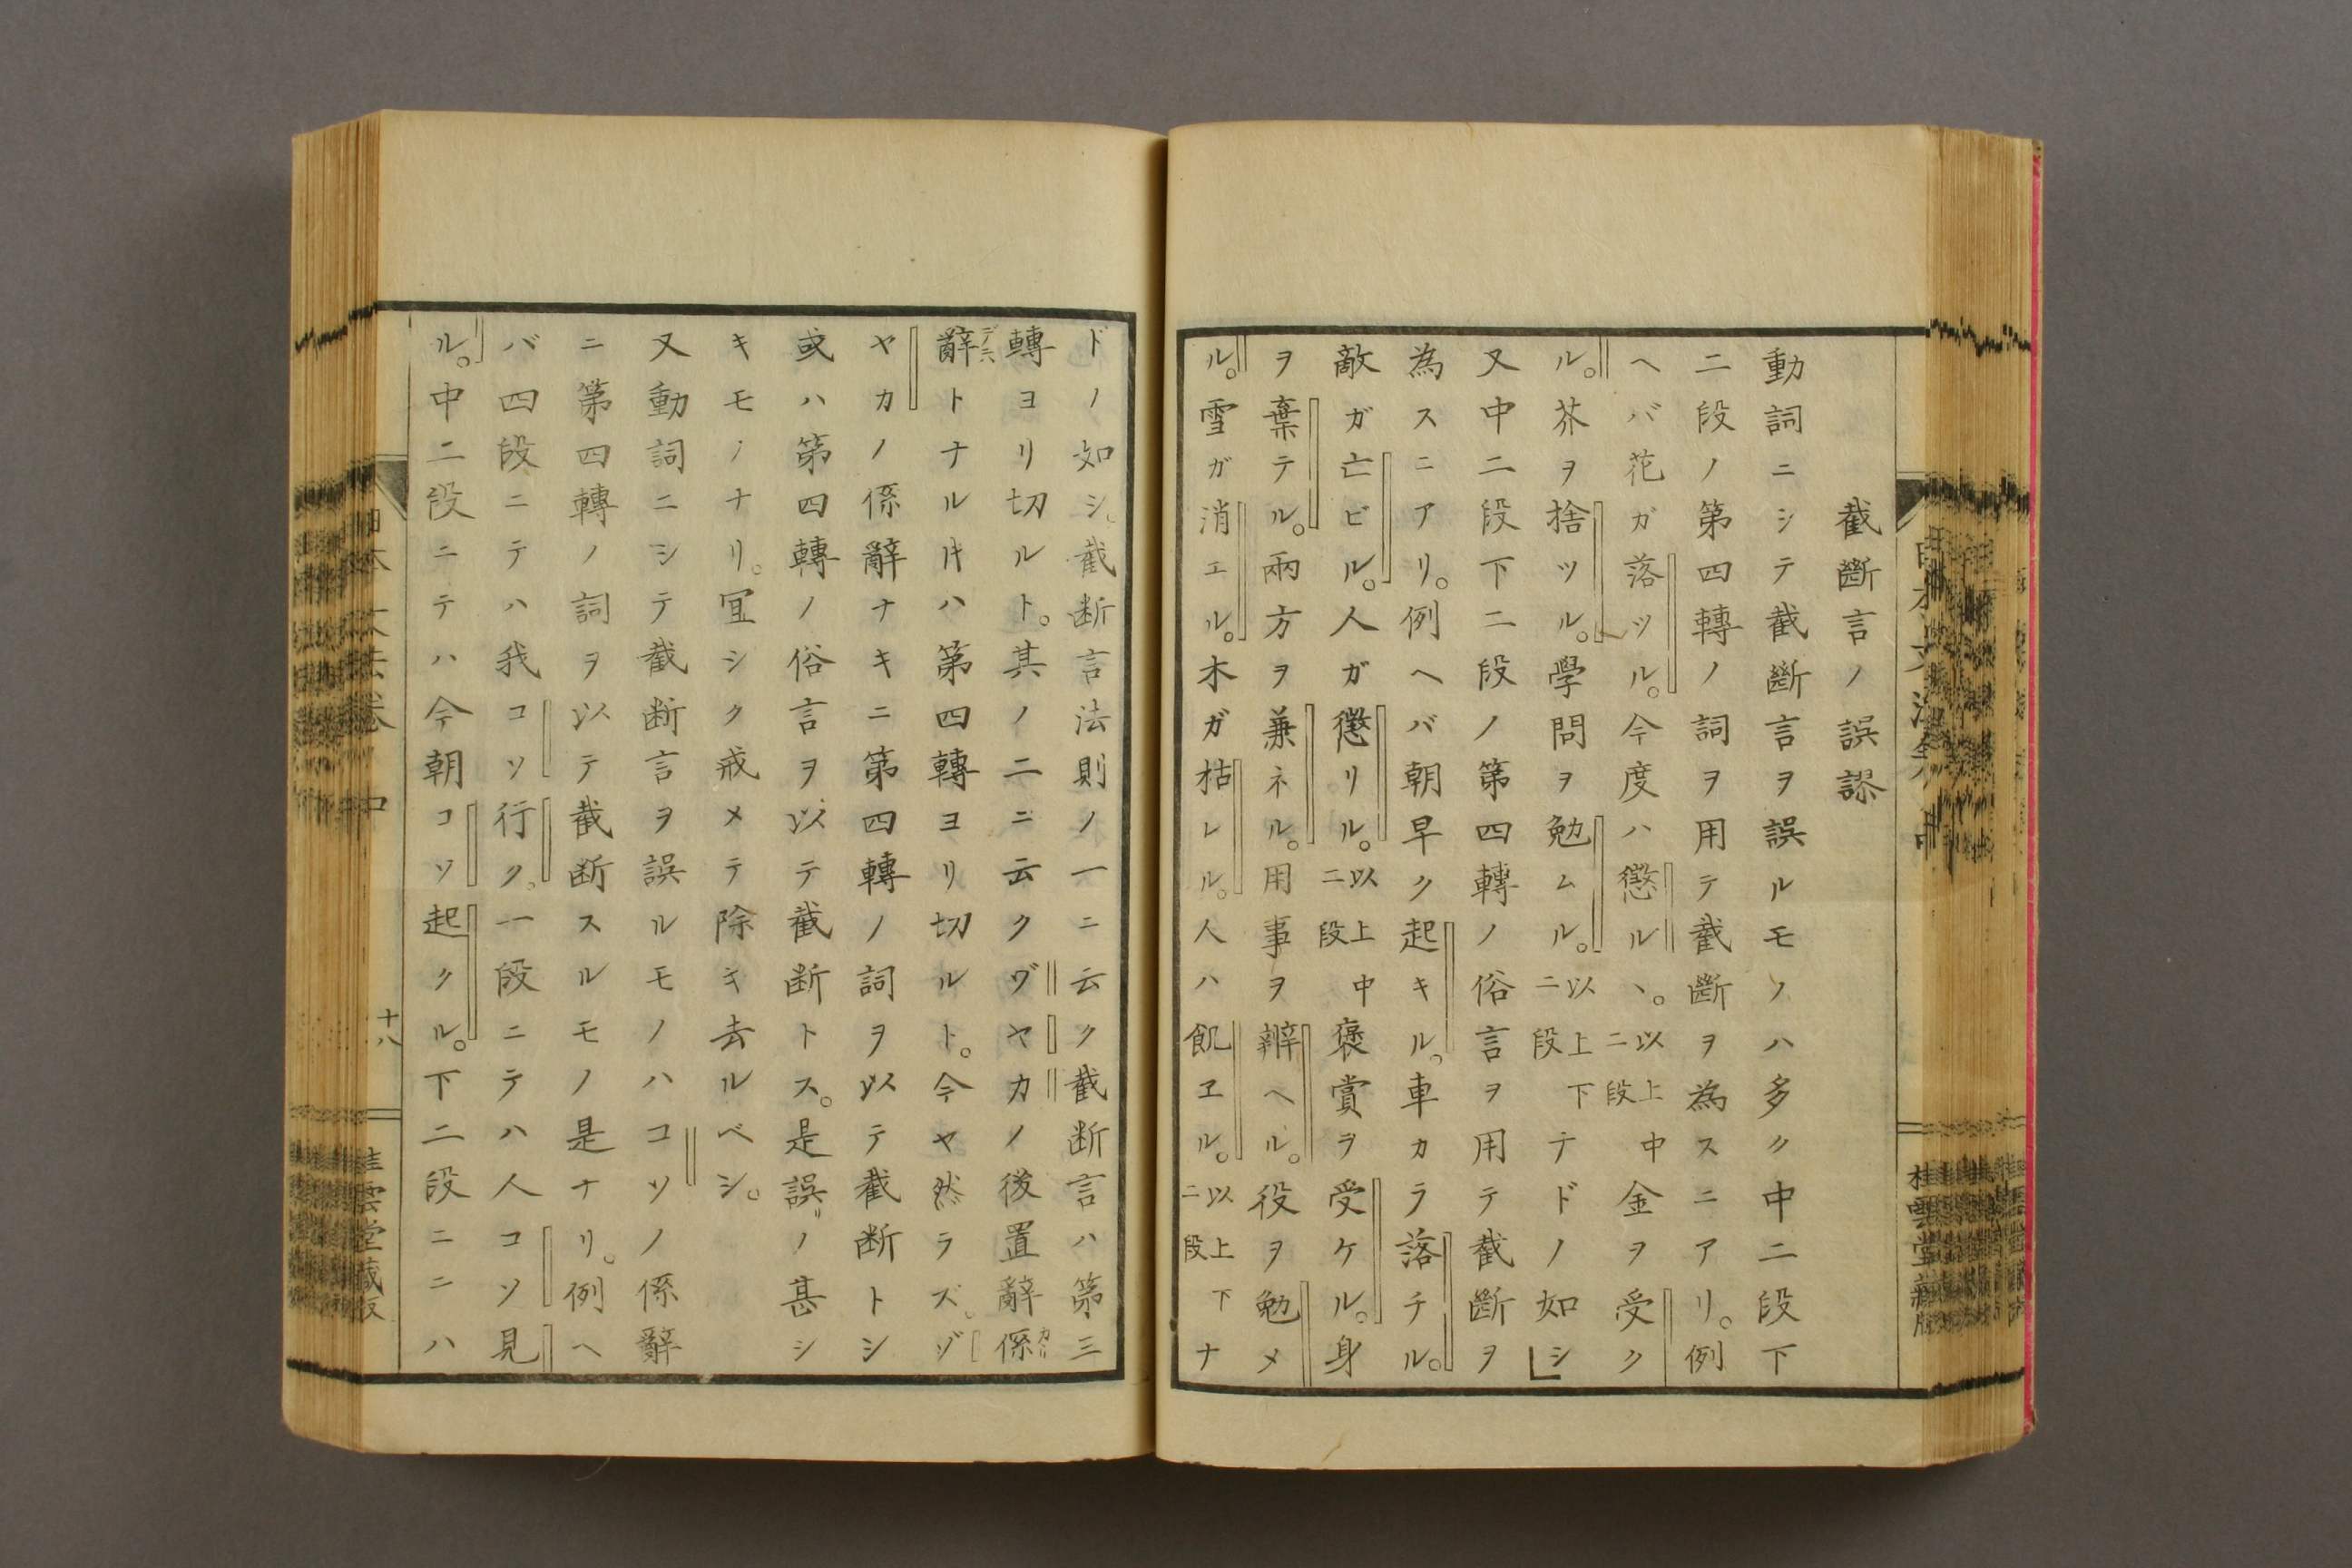 截斷言ノ誤謬
動詞ニシテ截斷言ヲ誤ルモノハ多ク中二段下
二段ノ第四轉ノ詞ヲ用テ截斷ヲ為スニアリ。例
ヘバ花ガ落ツル。今度ハ懲ルヽ。以上中二段金ヲ受ク
ル。芥ヲ捨ツル。學問ヲ勉ムル。以上下二段ナドノ如シ
又中二段下二段ノ第四轉ノ俗言ヲ用テ截斷ヲ
為スニアリ。例ヘバ朝早ク起キル。車カラ落チル。
敵ガ亡ビル。人ガ懲リル。以上中二段褒賞ヲ受ケル。身
ヲ棄テル。兩方ヲ兼ネル。用事ヲ辨ヘル。役ヲ勉メ
ル。雪ガ消エル。木ガ枯レル。人ハ飢ヱル。以上下二段ナ
ドノ如シ。截断言法則ノ一ニ云ク截断言ハ第三
轉ヨリ切ルト。其ノ二ニ云クヅヤカノ後置辭係カヽリ
辭デハトナル𪜈ハ第四轉ヨリ切ルト。今ヤ然ラズ。ゾ
ヤカノ係辭ナキニ第四轉ノ詞ヲ以テ截断トシ
或ハ第四轉ノ俗言ヲ以テ截断トス。是誤リノ甚シ
キモノナリ。冝シク戒メテ除キ去ルベシ。
又動詞ニシテ截断言ヲ誤ルモノハコソノ係辭
ニ第四轉ノ詞ヲ以テ截断スルモノ是ナリ。例ヘ
バ四段ニテハ我コソ行ク。一段ニテハ人コソ見
ル。中二段ニテハ今朝コソ起クル。下二段ニハ
日本文法卷 中
十八
桂雲堂藏版